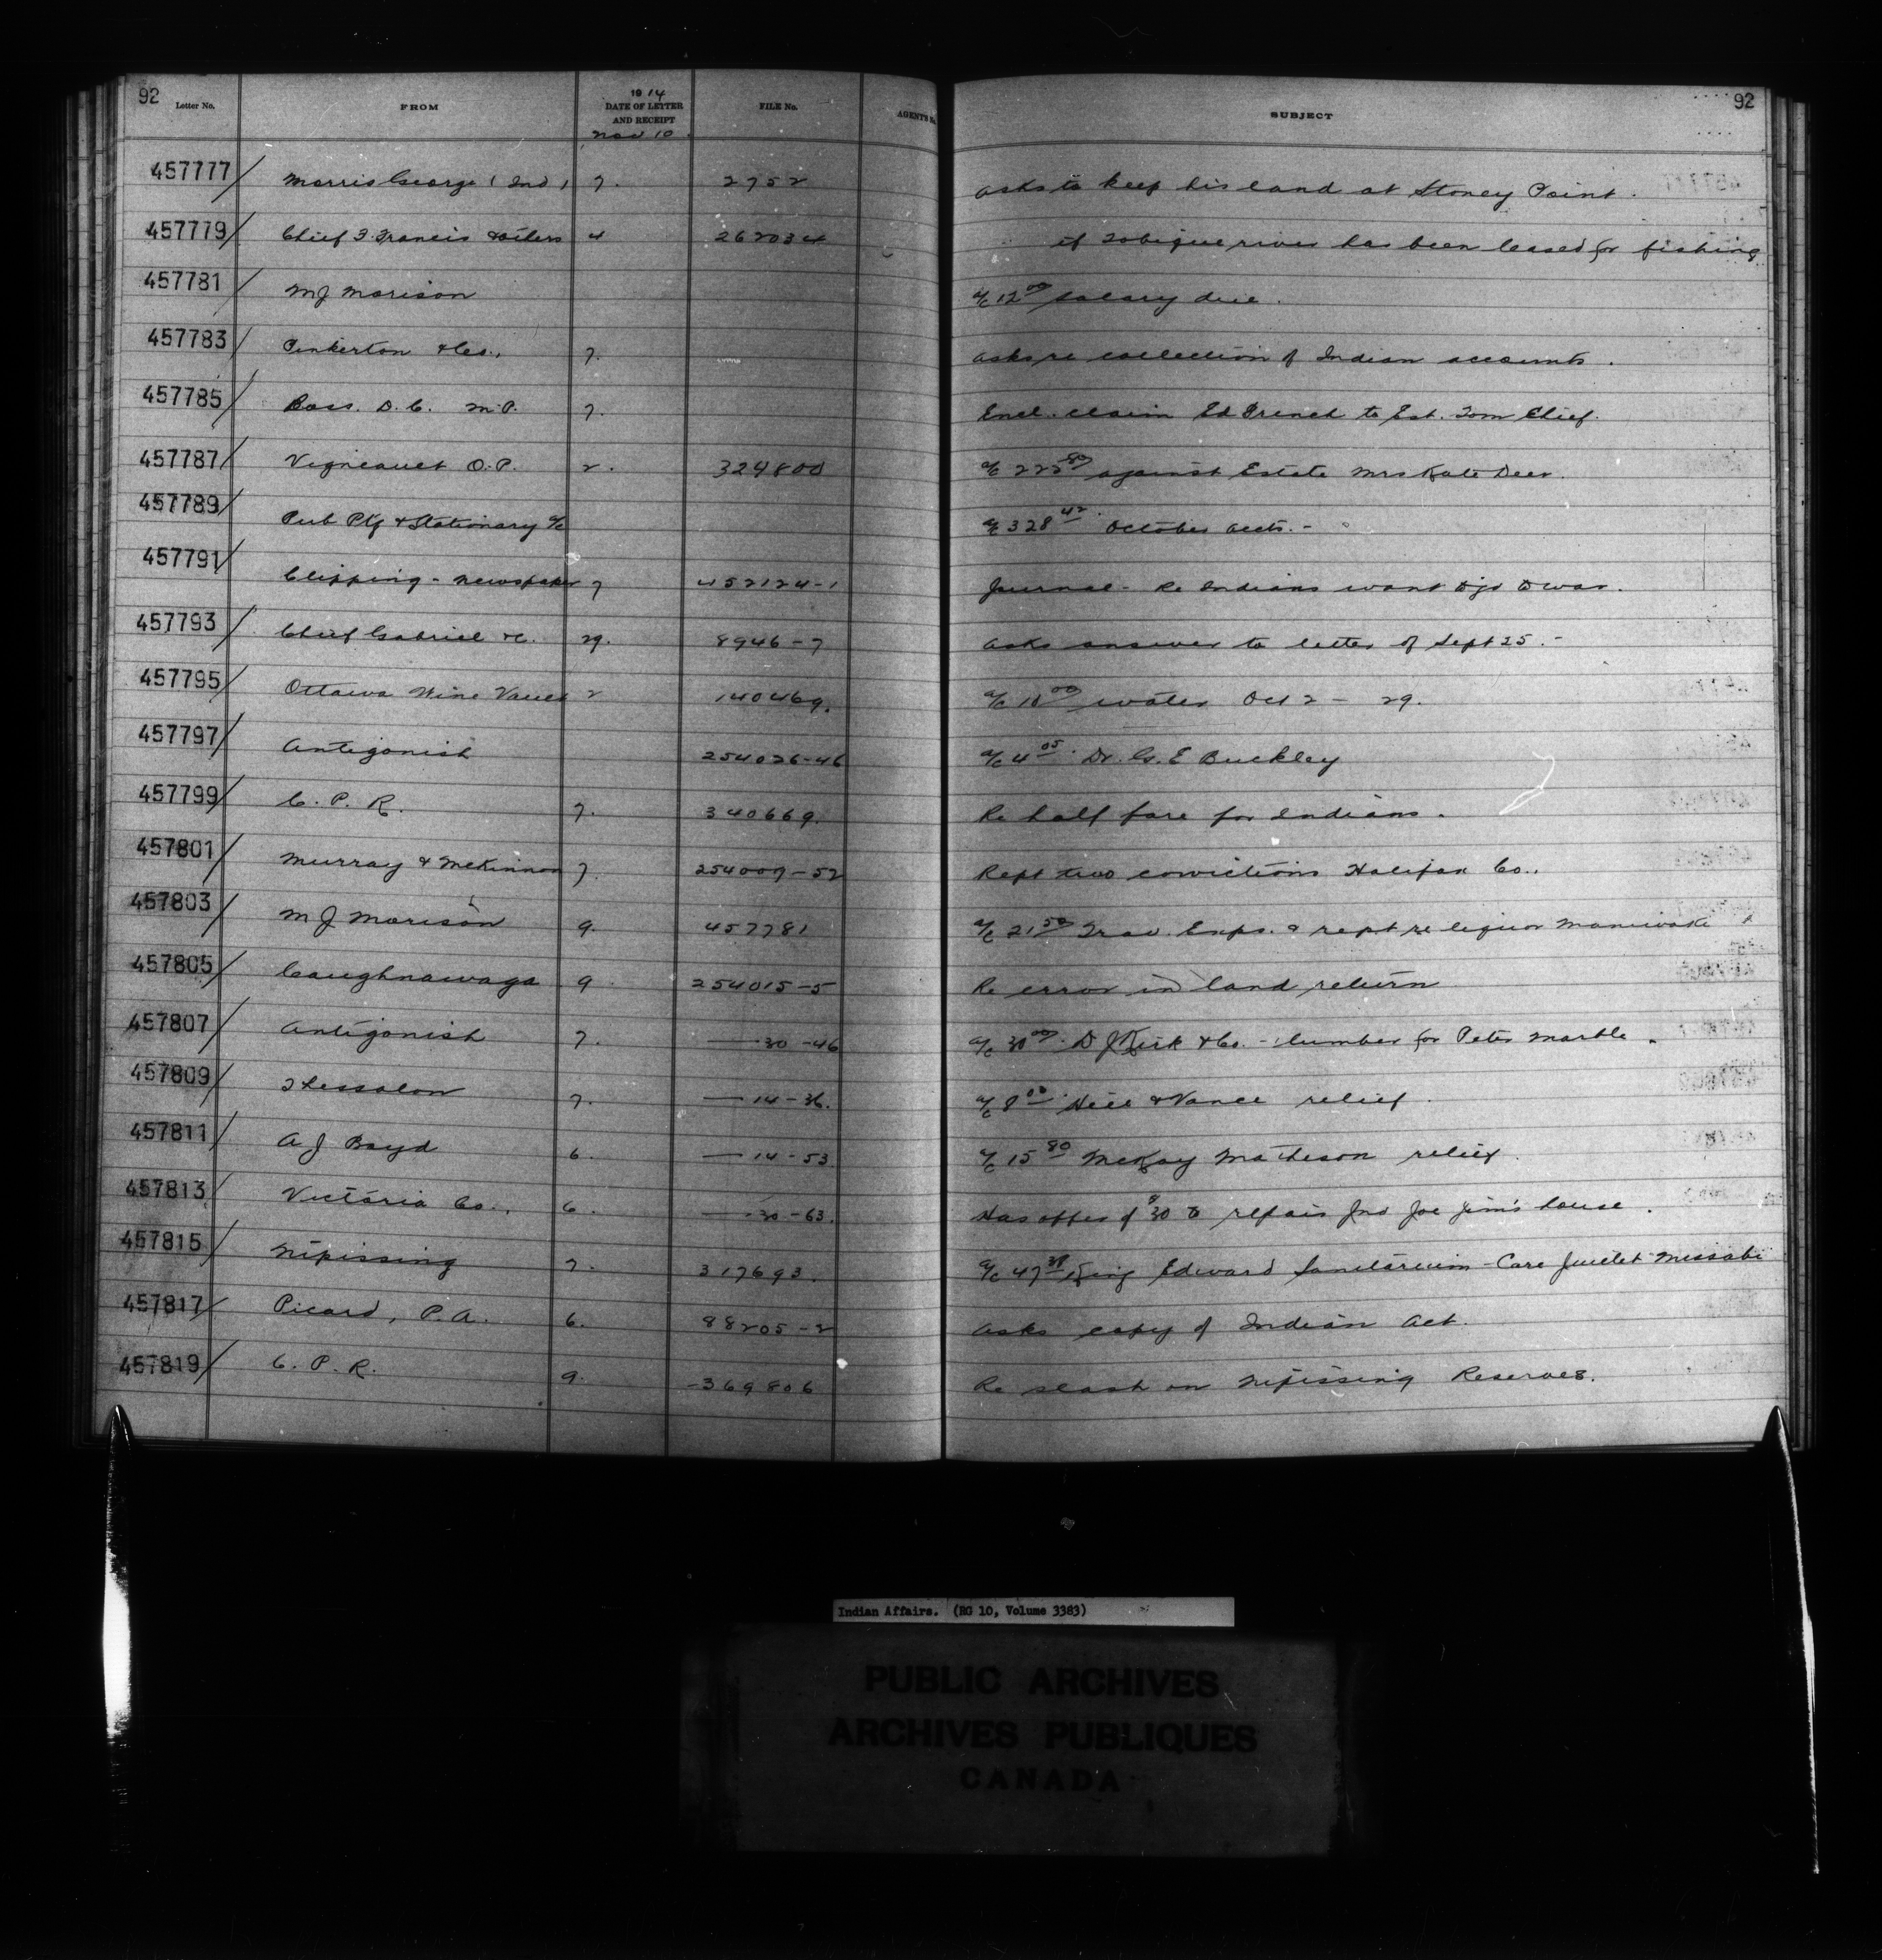 92 92
Letter No. FROM 1914 DATE OF LETTER AND RECEIPT FILE No. AGENT'S No. SUBJECT
Nov 10
457777 Morris George (Ind) 7. 2752 Asks to keep his land at Stoney Point.
457779 Chief F. Francis & others 4 262034 " if Tobique river has been leased for fishing
457781 M J Morison a/c 12.00 salary due.
457783 Pinkerton & Co., 7. Asks re collection of Indian accounts.
457785 Ross. D. C. M.P. 7. Encl. claim Ed French to Est. Tom Chief.
457787 Vigneault O.P. 2. 324800 a/c 222.80 against Estate Mrs Kate Deer.
457789 Pub Ptg & Stationary a/c a/c 328.42 October accts. -
457791 Clipping - Newspaper 7 452124-1 Journal - Re Indians want to go to war.
457793 Chief Gabriel &c. 29. 8946-7 Asks answer to letter of Sept 25. -
457795 Ottawa Wine Vaults 2 140469. a/c 10.00 water Oct 2 - 29.
457797 Antigonish 254026-46 a/c 4.05. Dr. G. E Buckley
457799 C. P. R. 7. 340669. Re half fare for Indians.
457801 Murray & McKinnon 7. 254009-52 Rept two convictions Halifax Co..
457803 M J Morison 9. 457781 a/c 21.50 Trav. Exps. & rept re liquor Maniwaki
457805 Caughnawaga 9 254015-5 Re error in land return
457807 Antigonish 7. — 30-46 a/c 30.00. D J Kirk & Co. - lumber for Peter Marble.
457809 Thessalon 7. — 14-36. a/c 8.00 Hill & Vance relief.
457811 A J Boyd 6. — 14-53 a/c 15.80 McKay Matheson relief.
457813 Victoria Co., 6. — 30-63. Has offer of $30 to repair Ind Joe Jim's house.
457815 Nipissing 7. 317693. a/c 47.38 King Edward Sanitarium - Care Juliet Missabi
457817 Picard, P. A. 6. 88205-2 Asks copy of Indian Act.
457819 C. P. R. 9. -369806 Re slash on Nipissing Reserves.
Indian Affairs. (RG 10, Volume 3383)
PUBLIC ARCHIVES
ARCHIVES PUBLIQUES
CANADA